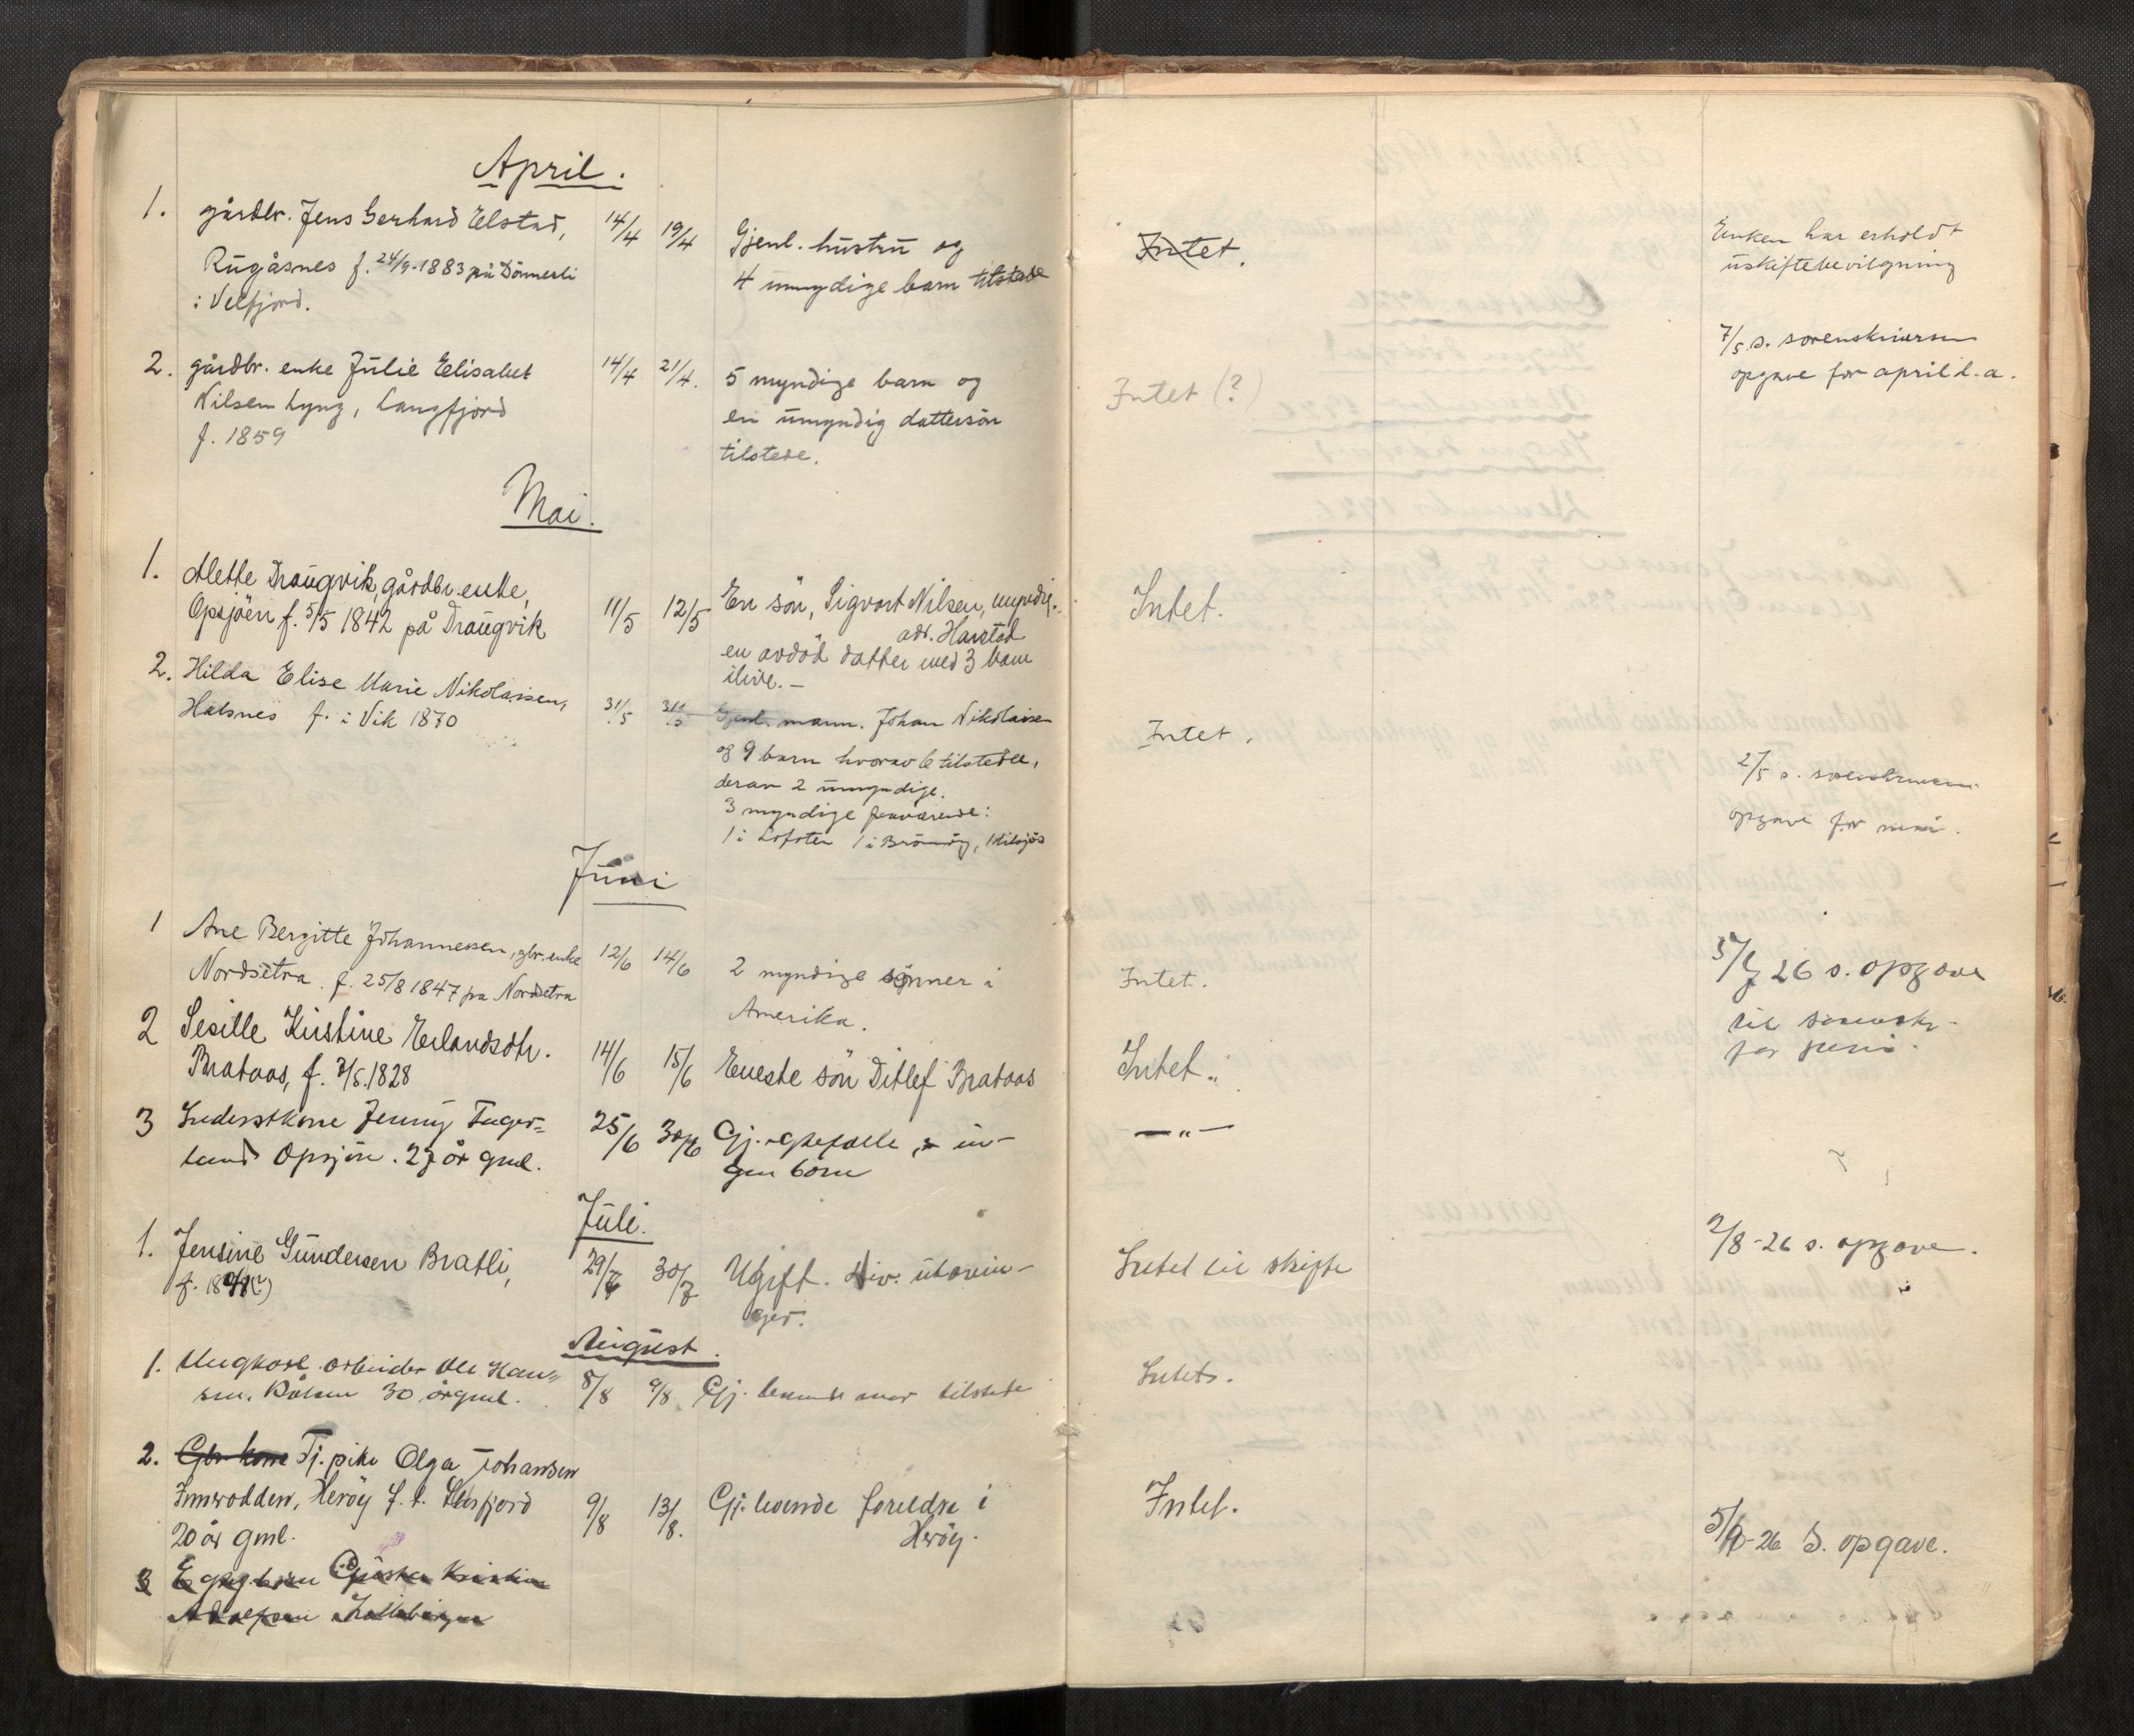 April.
1. gårdbr. Jens Gerhard Elstad,
Rugåsnes f. 24/9-1883 på Dönnesli
i Velfjord.
14/4 19/4
Gjenl. hustru og
4 umyndige barn tilstede
Intet.
Enken har erholdt
uskiftebevilgning
7/5 s. sorenskriveren
opgave for april d.a.
2. gårdbr. enke Julie Elisabet
Nilsen Lyng, Langfjord
f. 1859
14/4 21/4.
5 myndige barn og
en umyndig dattersön
tilstede.
Intet (?)
Mai.
1. Alette Draugvik, gårdbr. enke,
Opsjöen f. 5/5 1842 på Draugvik
11/5 12/5
En sön, Sigvart Nilsen, myndig.
adr. Harstad
en avdöd datter med 3 barn
ilive. —
Intet.
2. Hilda Elise Marie Nikolaisen,
Halsnes f. i Vik 1870
31/5 31/5
Gjenl. mann. Johan Nikolaisen
og 9 barn hvorav 6 tilstede,
derav 2 umyndige.
3 myndige fraværende:
1 i Lofoten 1 i Brönnöy,
Intet.
2/5 s.
opgave for mai.
Juni
1 Ane Bergitte Johannessen, gbr. enke
Nordsetra. f. 25/8 1847 på Nordsetra
12/6 14/6
2 myndige sönner i
Amerika.
Intet.
5/7 26 s. opgave
til sorenskr-
for juni.
2 Sesille Kirstine Erlandsdtr.
Brataas, f. 2/5.1828
14/6 15/6
Eneste sön Ditlef Brataas
Intet.
3 Inderstkone Jenny
land Opsjön. 27 år gml.
25/6 30/6
Gj. egtefælle, in-
gen börn
— " —
Juli.
1. Jensine Gundersen Bratli,
29/7 30/7
Ugift. div. utarvin-
ger.
Intet til skifte
2/8-26 s. opgave.
August.
1. Ungkarl arbeider Ole Han-
sen. 30 år gml.
8/8 9/8
Gj. tilstede
Intet.
2. Gbr kone Tj. pike Olga Johansen
Heröy f. i. Leirfjord
20 år gml.
9/8 13/8.
Gj. levende foreldre i
Heröy.
Intet.
5/9-26 S. opgave.
3